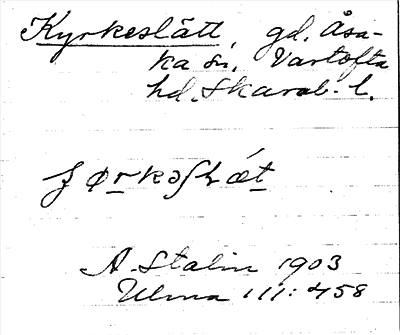 Kyrkeslätt, gd. Åsa-
ka sn. Vartofta
hd. Skarab. l.
A. Stalin 1903
Ulma 111:458